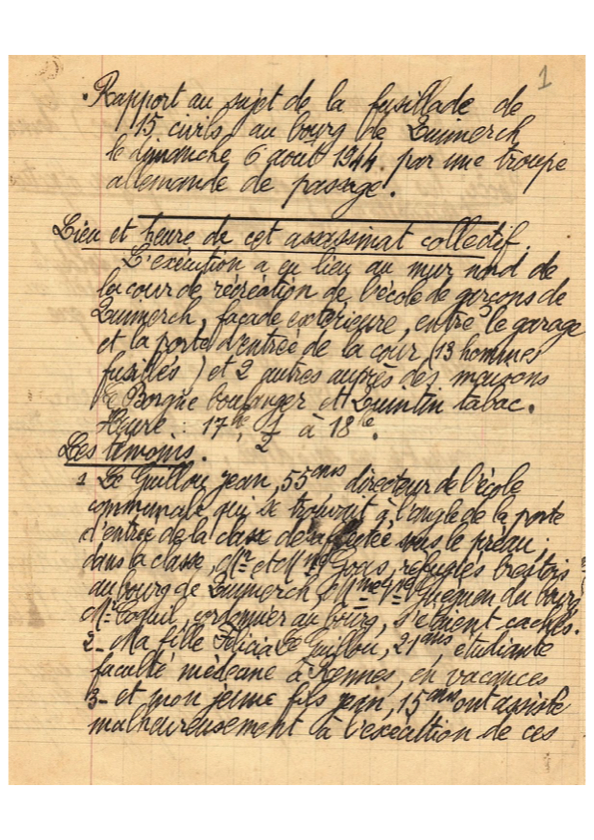 1
Rapport au sujet de la fusillade de
15 civils au bourg de Quimerch
le dimanche 6 août 1944. par une troupe
allemande de passage.
Lieu et heure de cet assassinat collectif.
L'exécution a eu lieu au mur nord de
la cour de récréation de l'école de garçons de
Quimerch, façade extérieure, entre le garage
et la porte d'entrée de la cour (13 hommes
fusillés) et 2 autres auprès des maisons
Le Borgne boulanger et Quintin tabac.
Heure : 17h 1/2 à 18h.
Les témoins.
1 Le Guillou Jean, 55 ans directeur de l'école
communale qui se trouvait à l'angle de la porte
d'entrée de la classe désaffectée sous le préau;
dans la classe, Mr et Mme Goas, réfugiés brestois
au bourg de Quimerch, Mme Vve Guégnon du bourg
Mr Coquil, cordonnier au bourg, s'étaient cachés.
2- Ma fille Félicia Le Guillou, 21 ans, étudiante
faculté médecine à Rennes, en vacances
3- et mon jeune fils Jean, 15 ans ont assisté
malheureusement à l'exécution de ces